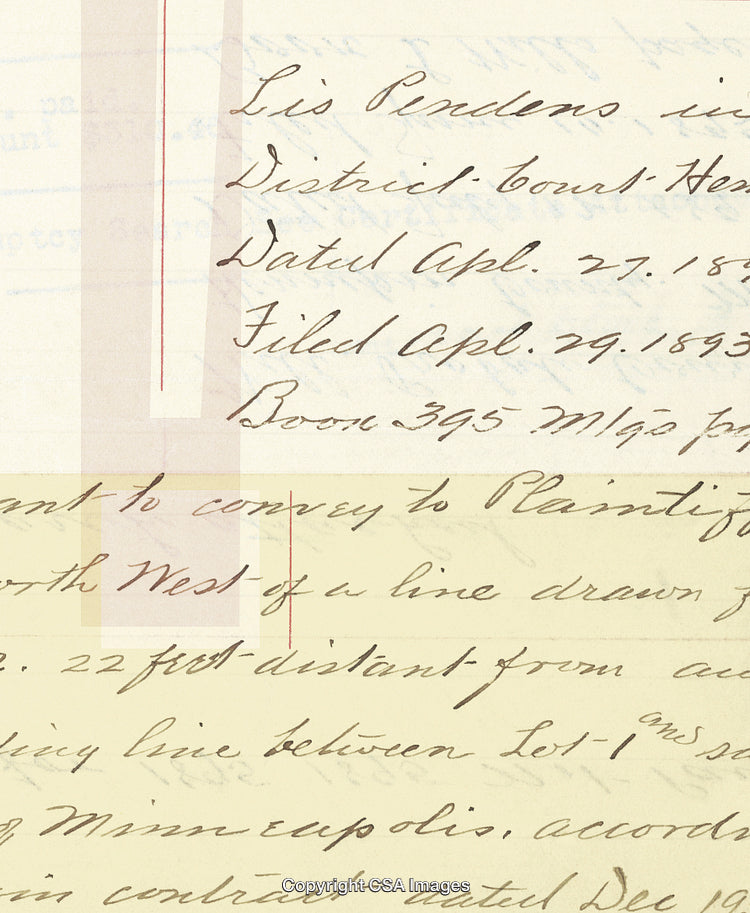 Lis Pendens in
District Court Hen
Dated Apl. 27. 189
Filed Apl. 29. 1893
Book 395 Mtgs pg
ant to convey to Plaintiff
orth West of a line drawn f
22 feet distant from an
ing line between Lot 1 and so
of Minneapolis, accord
in contract dated Dec 19
Copyright CSA Images